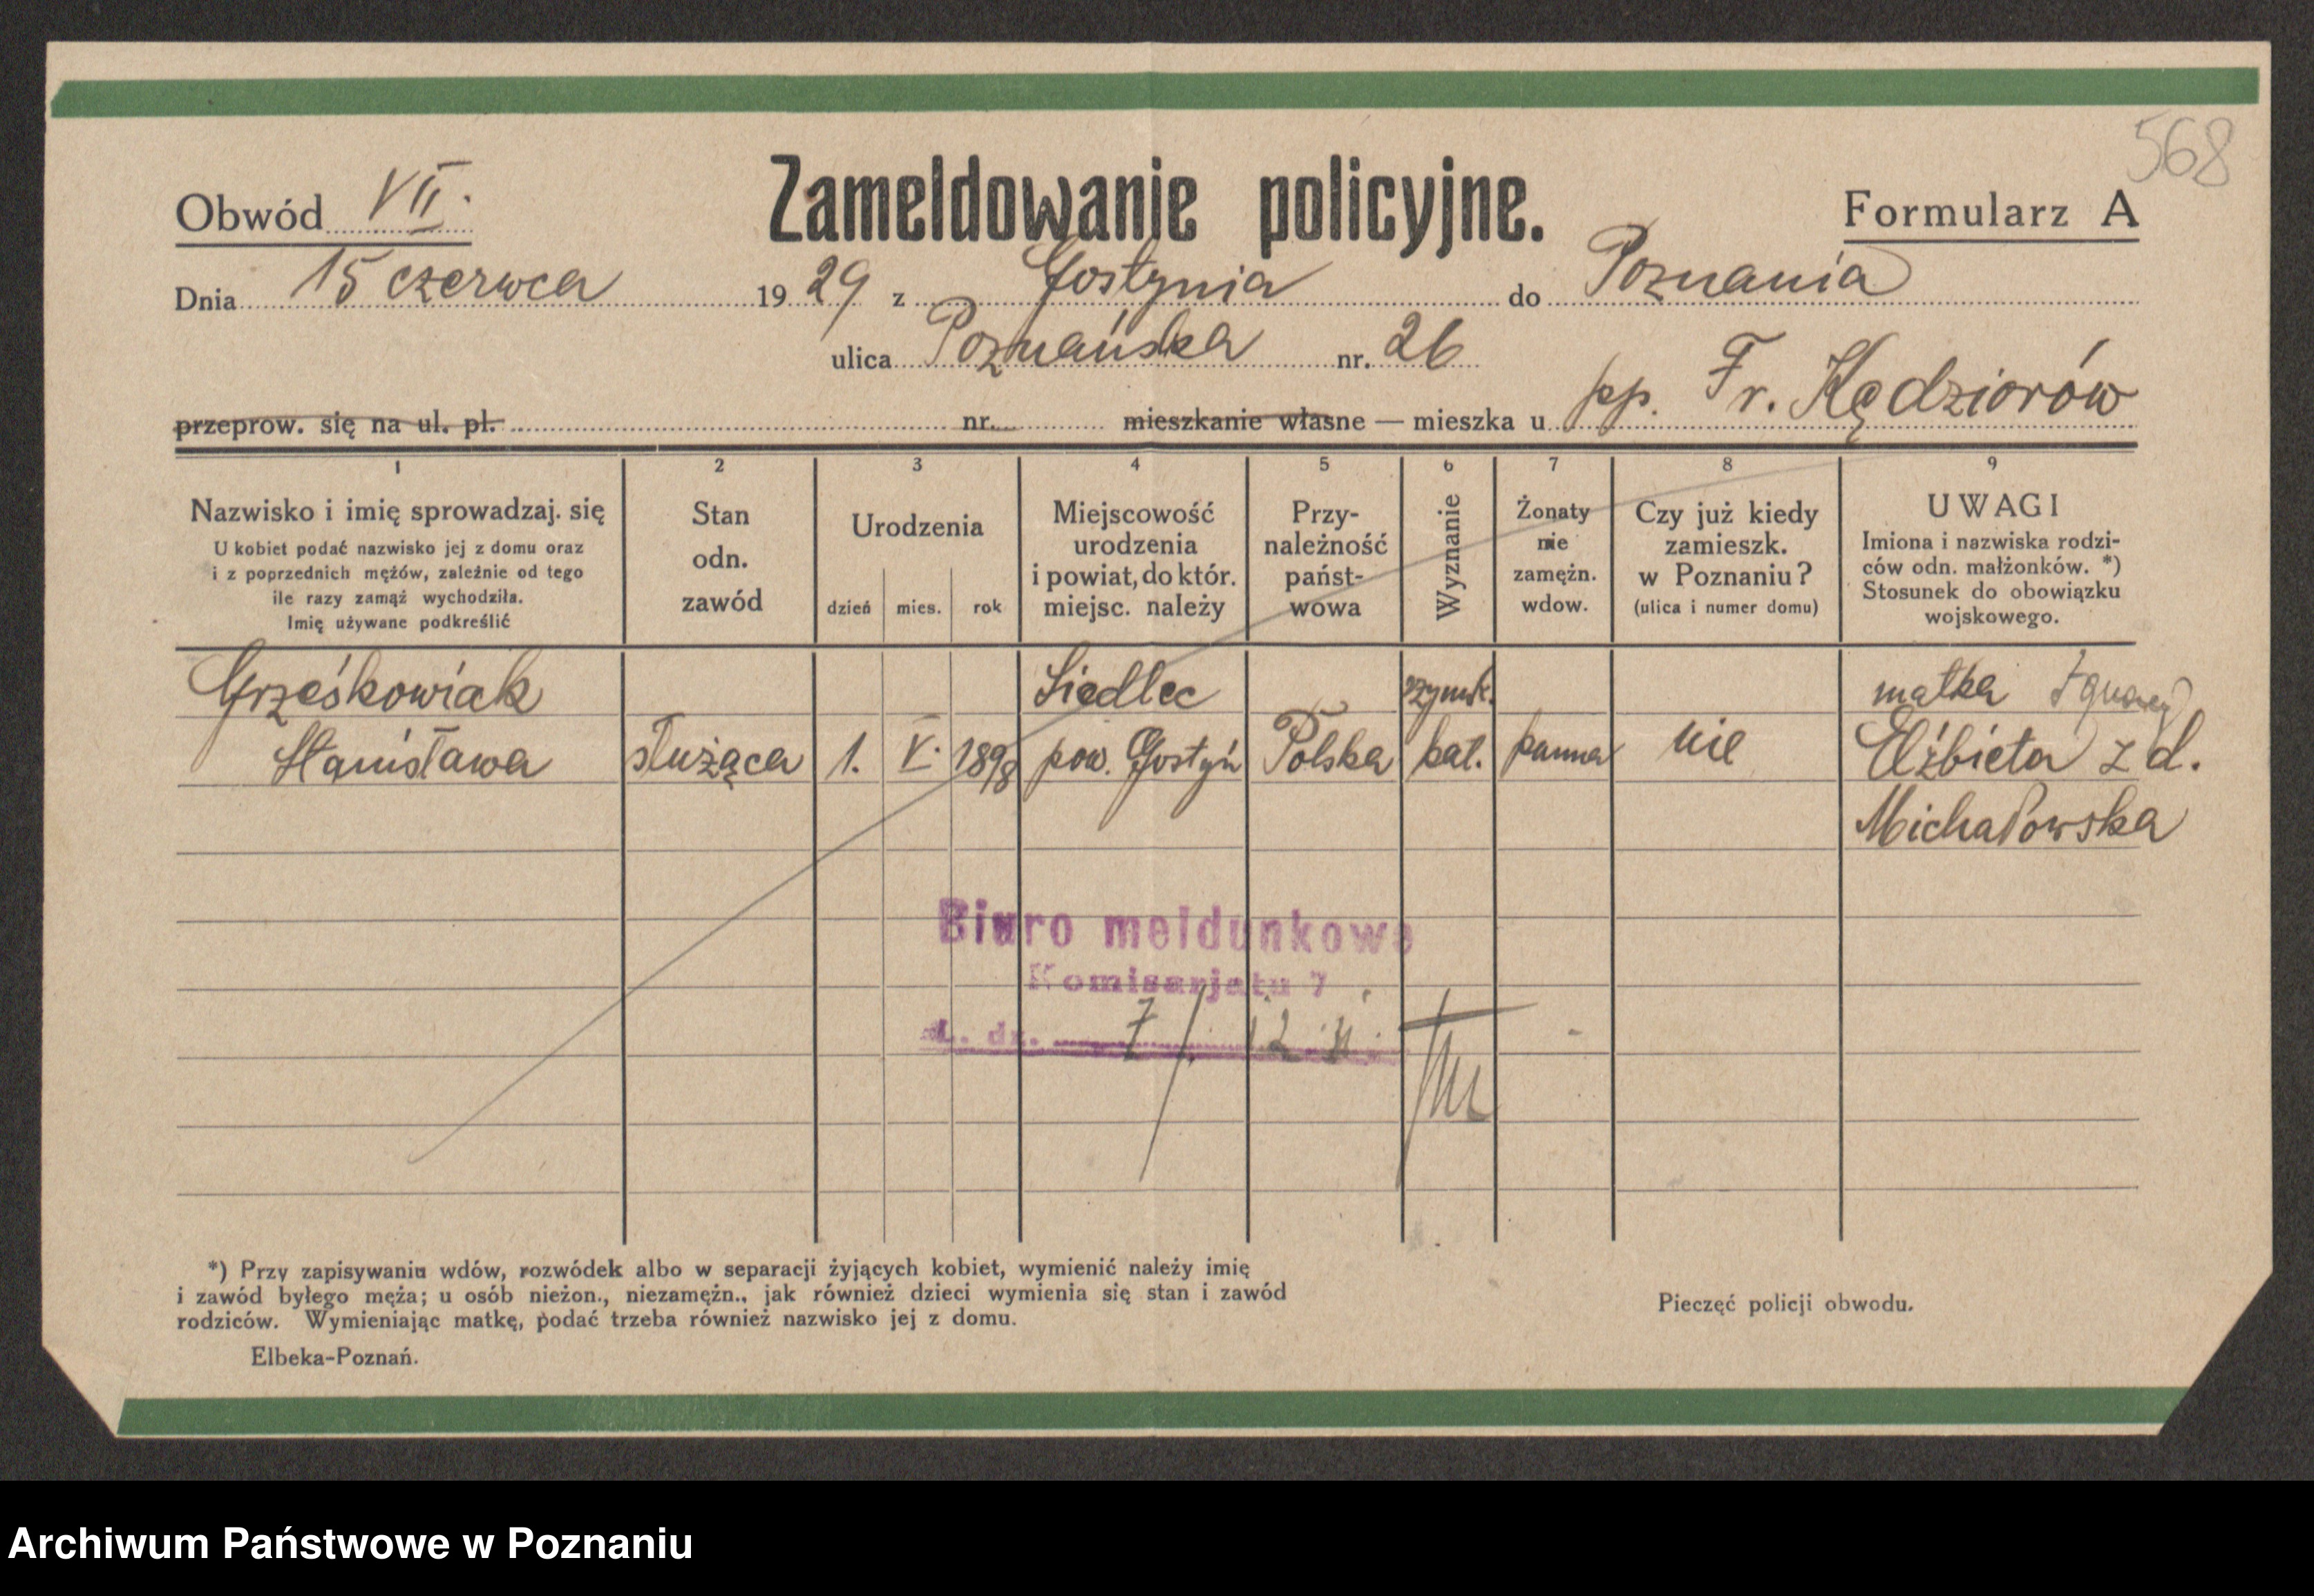 568
Obwód VII.
Zameldowanie policyjne.
Formularz A
Dnia 15 czerwca 1929 z Gostynia do Poznania
ulica Poznańska nr. 26
przeprow. się na ul. pl. nr. mieszkanie własne — mieszka u pp. Fr. Kędziorów
1 2 3 4 5 6 7 8 9
Nazwisko i imię sprowadzaj. się
U kobiet podać nazwisko jej z domu oraz
i z poprzednich mężów, zależnie od tego
ile razy zamąż wychodziła.
Imię używane podkreślić
Stan
odn.
zawód
Urodzenia
dzień mies. rok
Miejscowość
urodzenia
i powiat, do któr.
miejsc. należy
Przy-
należność
państ-
wowa
Wyznanie
Żonaty
nie
zamężn.
wdow.
Czy już kiedy
zamieszk.
w Poznaniu?
(ulica i numer domu)
UWAGI
Imiona i nazwiska rodzi-
ców odn. małżonków. *)
Stosunek do obowiązku
wojskowego.
Grześkowiak Siedlec rzymsk. matka
Stanisława służąca 1. V. 1898 pow. Gostyń Polska kat. panna nie Elżbieta z d.
Michałowska
Biuro meldunkowe
Komisarjatu 7
L. dz. 7/
*) Przy zapisywaniu wdów, rozwódek albo w separacji żyjących kobiet, wymienić należy imię
i zawód byłego męża; u osób nieżon., niezamężn., jak również dzieci wymienia się stan i zawód
rodziców. Wymieniając matkę, podać trzeba również nazwisko jej z domu.
Pieczęć policji obwodu.
Elbeka-Poznań.
Archiwum Państwowe w Poznaniu